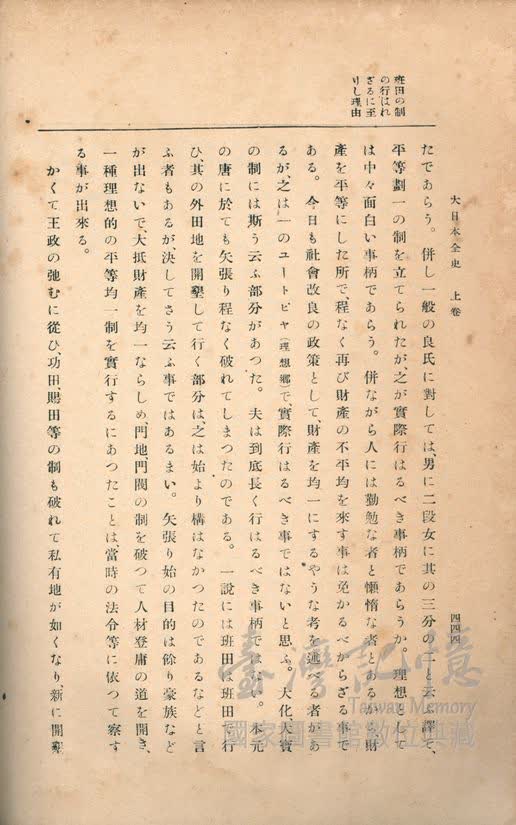 大日本全史　上卷
四四四
班田の制
の行はれ
ざるに至
りし理由
たであらう。併し一般の良民に對しては、男に二段女に其の三分の二と云ふ譯で、
平等劃一の制を立てられたが、之が實際行はるべき事柄であらうか。理想として
は中々面白い事柄であらう。併ながら人には勤勉な者と懶惰な者とあるから財
產を平等にした所で、程なく再び財產の不平均を來す事は免かるべからざる事で
ある。今日も社會改良の政策として、財產を均一にするやうな考を述べる者があ
るが、之は一のユートピヤ(理想鄕)で、實際行はるべき事ではないと思ふ。大化、大寶
の制には斯う云ふ部分があつた。夫は到底長く行はるべき事柄ではない。本元
の唐に於ても矢張り程なく破れてしまつたのである。一說には班田は班田で行
ひ、其の外田地を開墾して行く部分は、之は始より構はなかつたのであるなどと言
ふ者もあるが、決してさう云ふ事ではあるまい。矢張り始の目的は餘り豪族など
が出ないで、大抵財產を均一ならしめ、門地門閥の制を破つて人材登庸の道を開き、
一種理想的の平等均一制を實行するにあつたことは、當時の法令等に依つて察す
る事が出來る。
かくて王政の弛むに從ひ、功田、賜田等の制も破れて私有地が如くなり新に開墾
臺灣記憶
Taiwan Memory
國家圖書館數位典藏